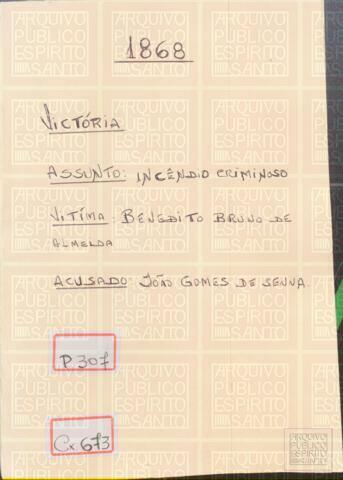 1868
VICTÓRIA
ASSUNTO: INCÊNDIO CRIMINOSO
VITÍMA: BENEDITO BRUNO DE
ALMEIDA
ACUSADO: JOÃO GOMES DE SENNA.
P.307
Cx 673
ARQUIVO
PÚBLICO
ESPÍRITO
SANTO